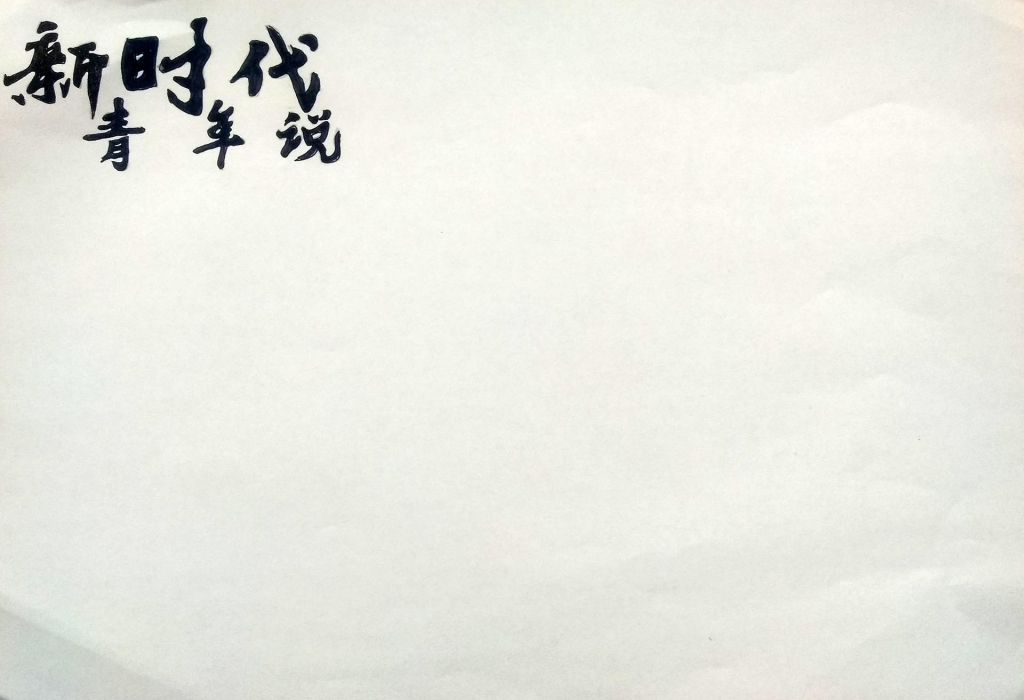 新时代
青年说